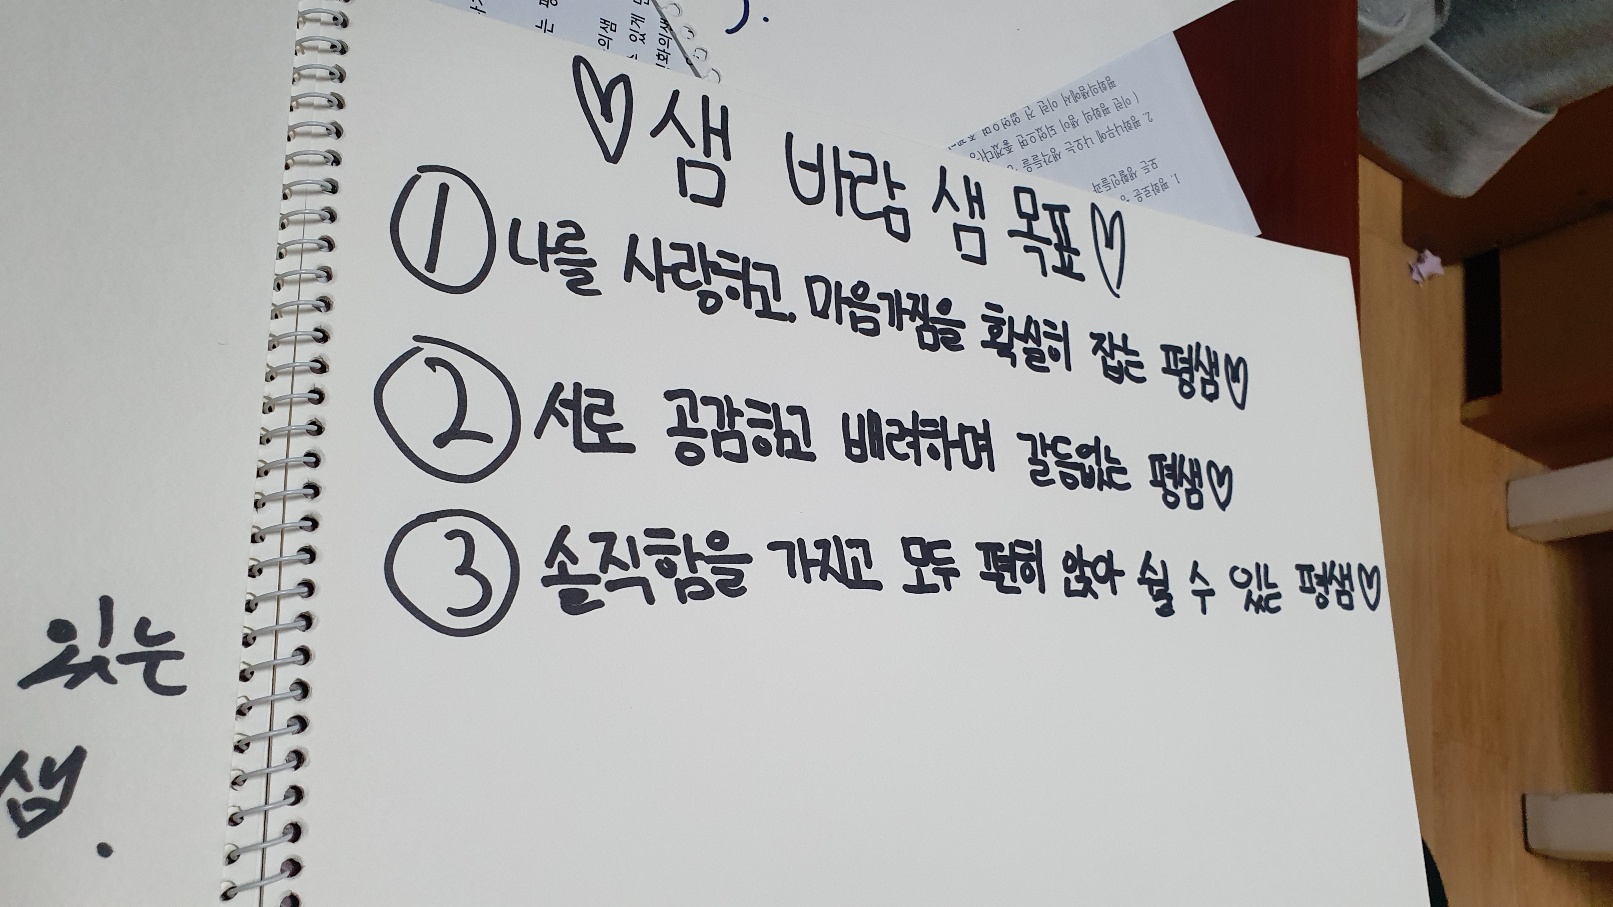 ♡샘 바람 샘 목표♡
① 나를 사랑하고, 마음가짐을 확실히 잡는 평샘♡
② 서로 공감하고 배려하며 갈등없는 평샘♡
③ 솔직함을 가지고 모두 편히 앉아 쉴 수 있는 평샘♡
있는
샘.